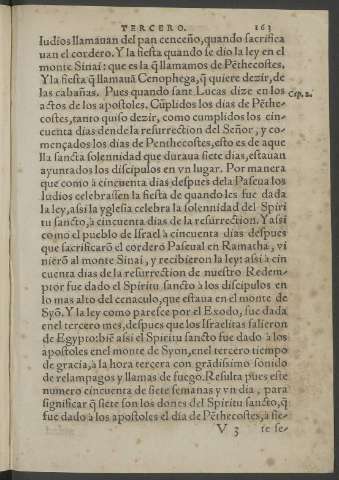 TERCERO. 163
Iudios llamauan del pan cenceño, quando sacrifica
uan el cordero. Y la fiesta quando se dio la ley en el
monte Sinai: que es la q̃ llamamos de Pẽthecostes.
Y la fiesta q̃ llamauã Cenophega, q̃ quiere dezir, de
las cabañas. Pues quando sant Lucas dize en los
actos de los apostoles. Cũplidos los dias de Pẽthe-
Cap. 2.
costes, tanto quiso dezir, como cumplidos los cin-
cuenta dias dende la resurrection del Señor, y co-
mençados los dias de Penthecostes, esto es de aque
lla sancta solennidad que duraua siete dias, estauan
ayuntados los discipulos en vn lugar. Por manera
que como à cincuenta dias despues dela Pascua los
Iudios celebrassen la fiesta de quando les fue dada
la ley, assi la yglesia celebra la solennidad del Spiri
tu sancto, à cincuenta dias de la resurrection. Y assi
como el pueblo de Israel à cincuenta dias despues
que sacrificarõ el cordero Pascual en Ramatha, vi
nierõ al monte Sinai, y recibieron la ley: assi à cin
cuenta dias de la resurrection de nuestro Redem-
ptor fue dado el Spiritu sancto à los discipulos en
lo mas alto del cenaculo, que estaua en el monte de
Syõ. Y la ley como paresce por el Exodo, fue dada
enel tercero mes, despues que los Israelitas salieron
de Egypto: biẽ assi el Spiritu sancto fue dado à los
apostoles enel monte de Syon, enel tercero tiempo
de gracia, à la hora tercera con grãdissimo sonido
de relampagos y llamas de fuego. Resulta pues este
numero cincuenta de siete semanas y vn dia, para
significar q̃ siete son los dones del Spiritu sancto, q̃
fue dado à los apostoles el dia de Pẽthecostes, à sie-
V 3 te se-